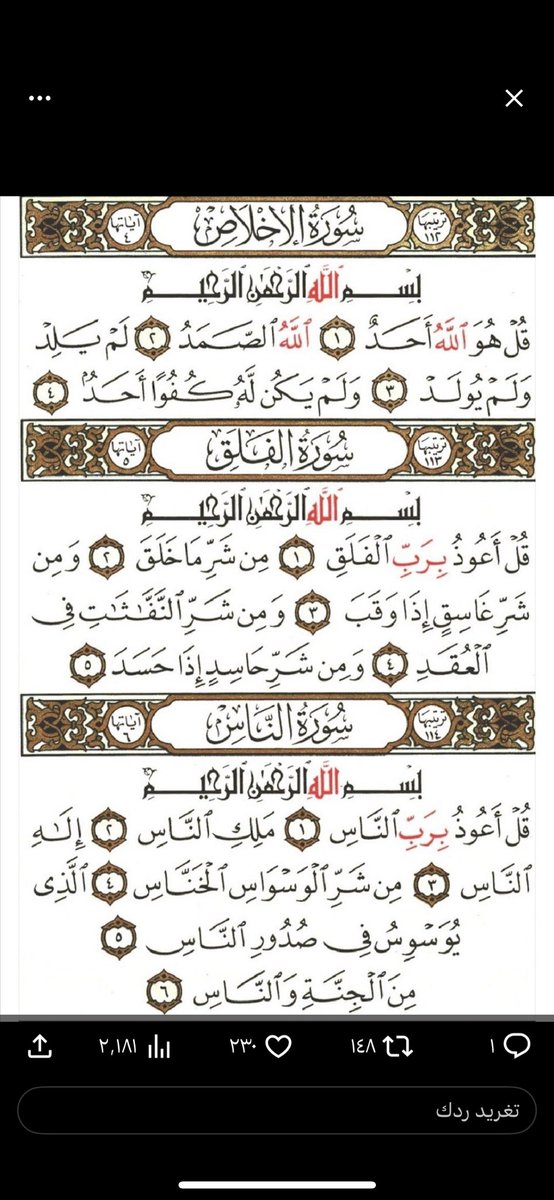 سُورَةُ الإِخْلَاصِ ترتيبها ١١٢ آياتها ٤
بِسْمِ ٱللَّهِ ٱلرَّحْمَٰنِ ٱلرَّحِيمِ
قُلْ هُوَ ٱللَّهُ أَحَدٌ ١ ٱللَّهُ ٱلصَّمَدُ ٢ لَمْ يَلِدْ
وَلَمْ يُولَدْ ٣ وَلَمْ يَكُن لَّهُۥ كُفُوًا أَحَدٌۢ ٤
سُورَةُ الفَلَقِ ترتيبها ١١٣ آياتها ٥
بِسْمِ ٱللَّهِ ٱلرَّحْمَٰنِ ٱلرَّحِيمِ
قُلْ أَعُوذُ بِرَبِّ ٱلْفَلَقِ ١ مِن شَرِّ مَا خَلَقَ ٢ وَمِن
شَرِّ غَاسِقٍ إِذَا وَقَبَ ٣ وَمِن شَرِّ ٱلنَّفَّٰثَٰتِ فِى
ٱلْعُقَدِ ٤ وَمِن شَرِّ حَاسِدٍ إِذَا حَسَدَ ٥
سُورَةُ النَّاسِ ترتيبها ١١٤ آياتها ٦
بِسْمِ ٱللَّهِ ٱلرَّحْمَٰنِ ٱلرَّحِيمِ
قُلْ أَعُوذُ بِرَبِّ ٱلنَّاسِ ١ مَلِكِ ٱلنَّاسِ ٢ إِلَٰهِ
ٱلنَّاسِ ٣ مِن شَرِّ ٱلْوَسْوَاسِ ٱلْخَنَّاسِ ٤ ٱلَّذِى
يُوَسْوِسُ فِى صُدُورِ ٱلنَّاسِ ٥
مِنَ ٱلْجِنَّةِ وَٱلنَّاسِ ٦
١ ١٤٨ ٢٣٠ ٢,١٨١
تغريد ردك